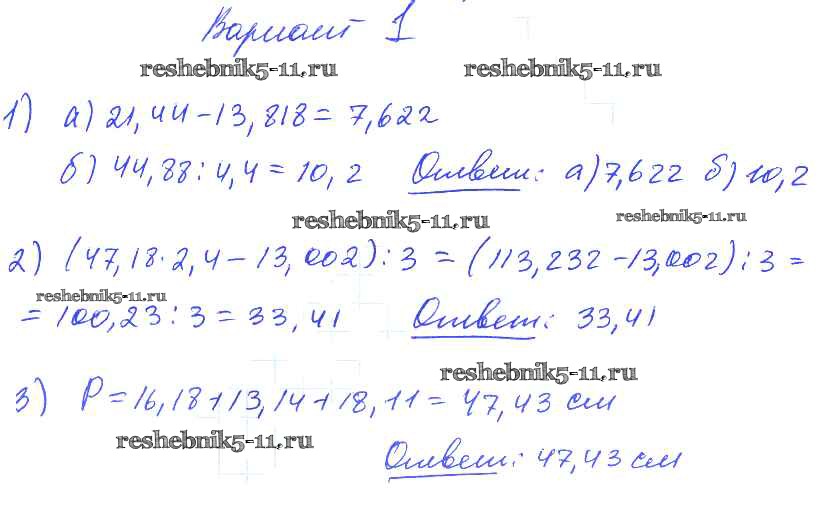 Вариант 1
reshebnik5-11.ru reshebnik5-11.ru
1) а) 21,44-13,818=7,622
б) 44,88:4,4=10,2 Ответ: а)7,622 б)10,2
reshebnik5-11.ru reshebnik5-11.ru
2) (47,18·2,4-13,002):3=(113,232-13,002):3=
reshebnik5-11.ru
=100,23:3=33,41 Ответ: 33,41
reshebnik5-11.ru
3) P=16,18+13,14+18,11=47,43 см
reshebnik5-11.ru
Ответ: 47,43 см